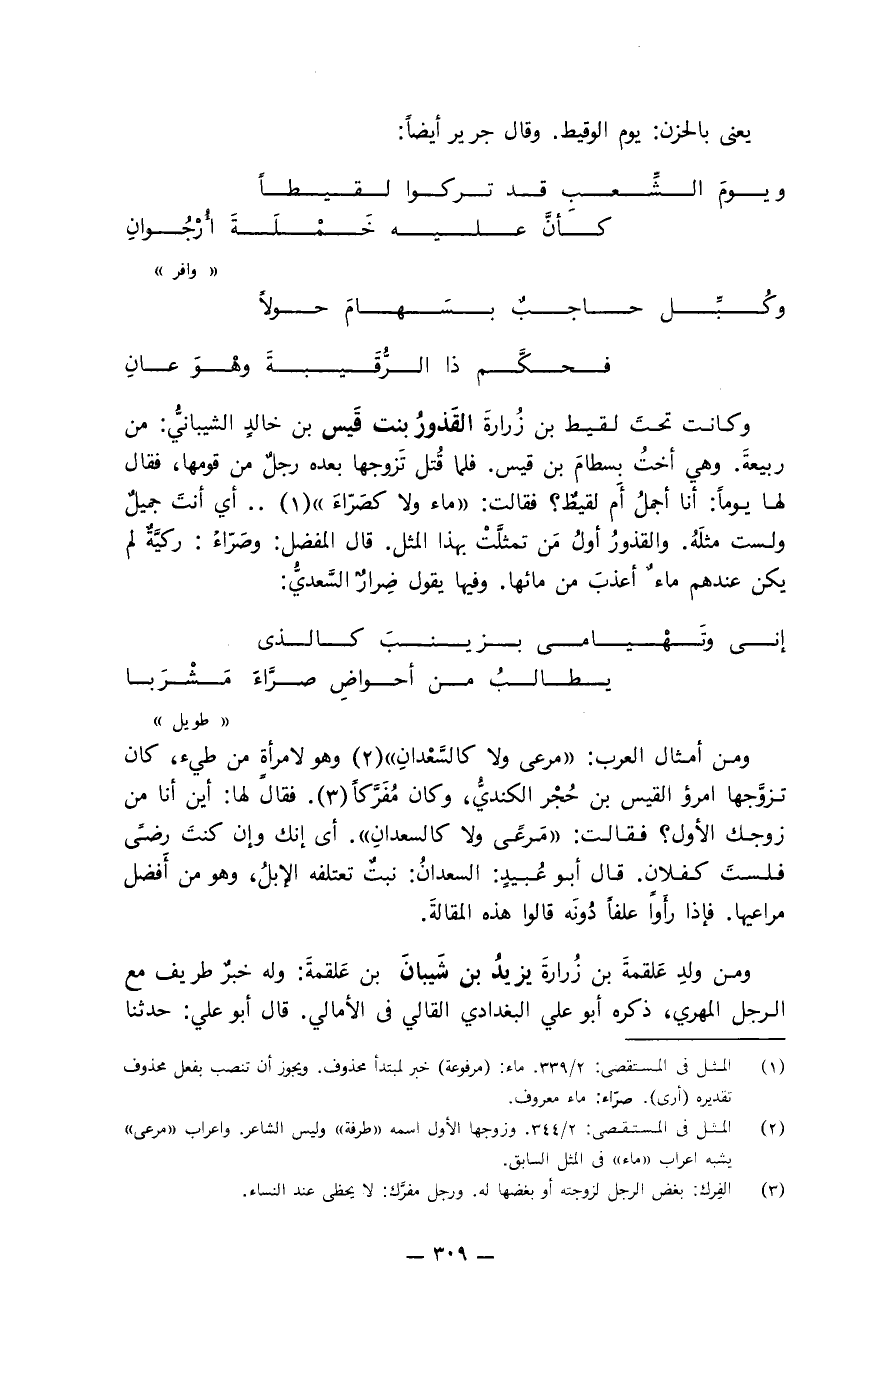 يعنى بالحزن: يوم الوقيط. وقال جرير أيضاً:
ويومَ الشِّعبِ قد تركوا لقيطاً
كأنَّ عليه خَمْلَةَ أُرْجُوانِ
« وافر »
وكُبِّل حاجبٌ بسَهامَ حولاً
فحكَّم ذا الرُّقَيبةَ وهْوَ عانِ
وكانت تحتَ لقيط بن زُرارةَ القَذورُ بنت قَيس بن خالدٍ الشيبانيُّ: من
ربيعةَ. وهي أختُ بِسطامَ بن قيس. فلما قُتل تَزوجها بعده رجلٌ من قومها، فقال
لها يوماً: أنا أجملُ أَم لقيطٌ؟ فقالت: «ماء ولا كصَرّاءَ »(١) .. أي أنتَ جميلٌ
ولست مثلَهُ. والقذورُ أولُ مَن تمثلَّتْ بهذا المثل. قال المفضل: وصَرّاءُ : ركيَّةٌ لم
يكن عندهم ماءٌ أعذبَ من مائها. وفيها يقول ضِرارٌ السَّعديُّ:
إنى وتَهْيامى بزينبَ كالذى
يطالبُ من أحواضِ صرَّاءَ مَشْرَبا
« طويل »
ومن أمثال العرب: «مرعى ولا كالسَّعْدانِ»(٢) وهو لامرأةٍ من طيء، كان
تزوَّجها امرؤ القيس بن حُجْر الكنديُّ، وكان مُفَرَّكاً(٣). فقال لها: أين أنا من
زوجك الأول؟ فقالت: «مَرعًى ولا كالسعدانِ». أى إنك وإن كنتَ رضًى
فلستَ كفلان. قال أبو عُبيدٍ: السعدانُ: نبتٌ تعتلفه الإبلُ، وهو من أَفضل
مراعيها. فإذا رأَواْ علفاً دُونَه قالوا هذه المقالةَ.
ومن ولدِ عَلقمةَ بن زُرارةَ يزيدُ بن شَيبانَ بن عَلقمةَ: وله خبرٌ طريف مع
الرجل المهري، ذكره أبو علي البغدادي القالي فى الأمالي. قال أبو علي: حدثنا
(١) المثل فى المستقصى: ٣٣٩/٢. ماء: (مرفوعة) خبر لمبتدأ محذوف. ويجوز أن تنصب بفعل محذوف
تقديره (أرى). صرّاء: ماء معروف.
(٢) المثل فى المستقصى: ٣٤٤/٢. وزوجها الأول اسمه «طرفة» وليس الشاعر. واعراب «مرعى»
يشبه اعراب «ماء» فى المثل السابق.
(٣) الفِرك: بغض الرجل لزوجته أو بغضها له. ورجل مفرَّك: لا يحظى عند النساء.
— ٣٠٩ —